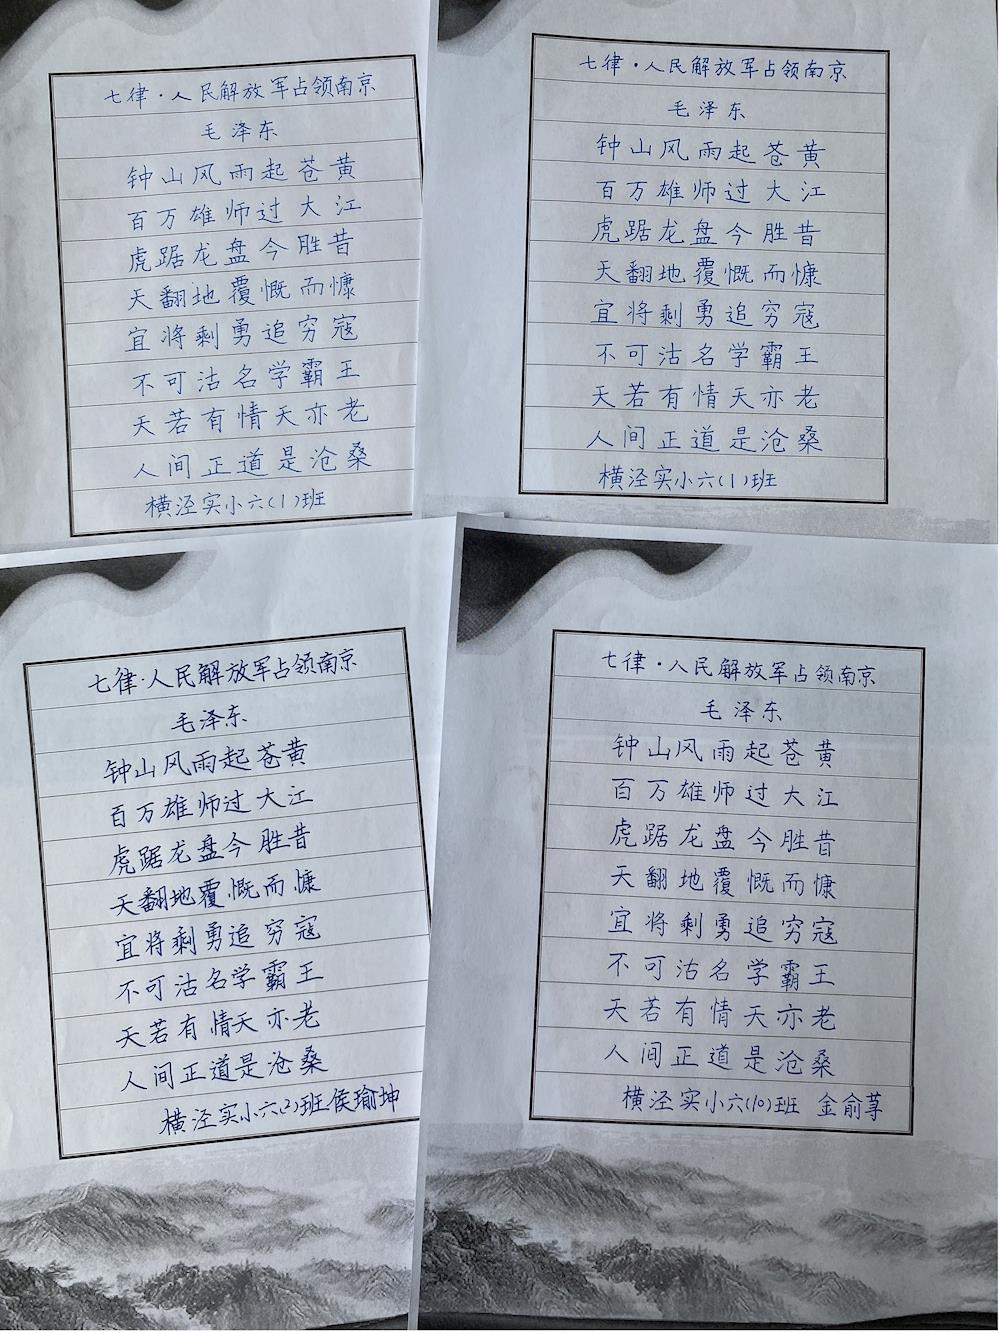 七律·人民解放军占领南京
毛泽东
钟山风雨起苍黄
百万雄师过大江
虎踞龙盘今胜昔
天翻地覆慨而慷
宜将剩勇追穷寇
不可沽名学霸王
天若有情天亦老
人间正道是沧桑
横泾实小六(1)班
七律·人民解放军占领南京
毛泽东
钟山风雨起苍黄
百万雄师过大江
虎踞龙盘今胜昔
天翻地覆慨而慷
宜将剩勇追穷寇
不可沽名学霸王
天若有情天亦老
人间正道是沧桑
横泾实小六(1)班
七律·人民解放军占领南京
毛泽东
钟山风雨起苍黄
百万雄师过大江
虎踞龙盘今胜昔
天翻地覆慨而慷
宜将剩勇追穷寇
不可沽名学霸王
天若有情天亦老
人间正道是沧桑
横泾实小六(2)班侯瑜坤
七律·人民解放军占领南京
毛泽东
钟山风雨起苍黄
百万雄师过大江
虎踞龙盘今胜昔
天翻地覆慨而慷
宜将剩勇追穷寇
不可沽名学霸王
天若有情天亦老
人间正道是沧桑
横泾实小六(10)班 金俞